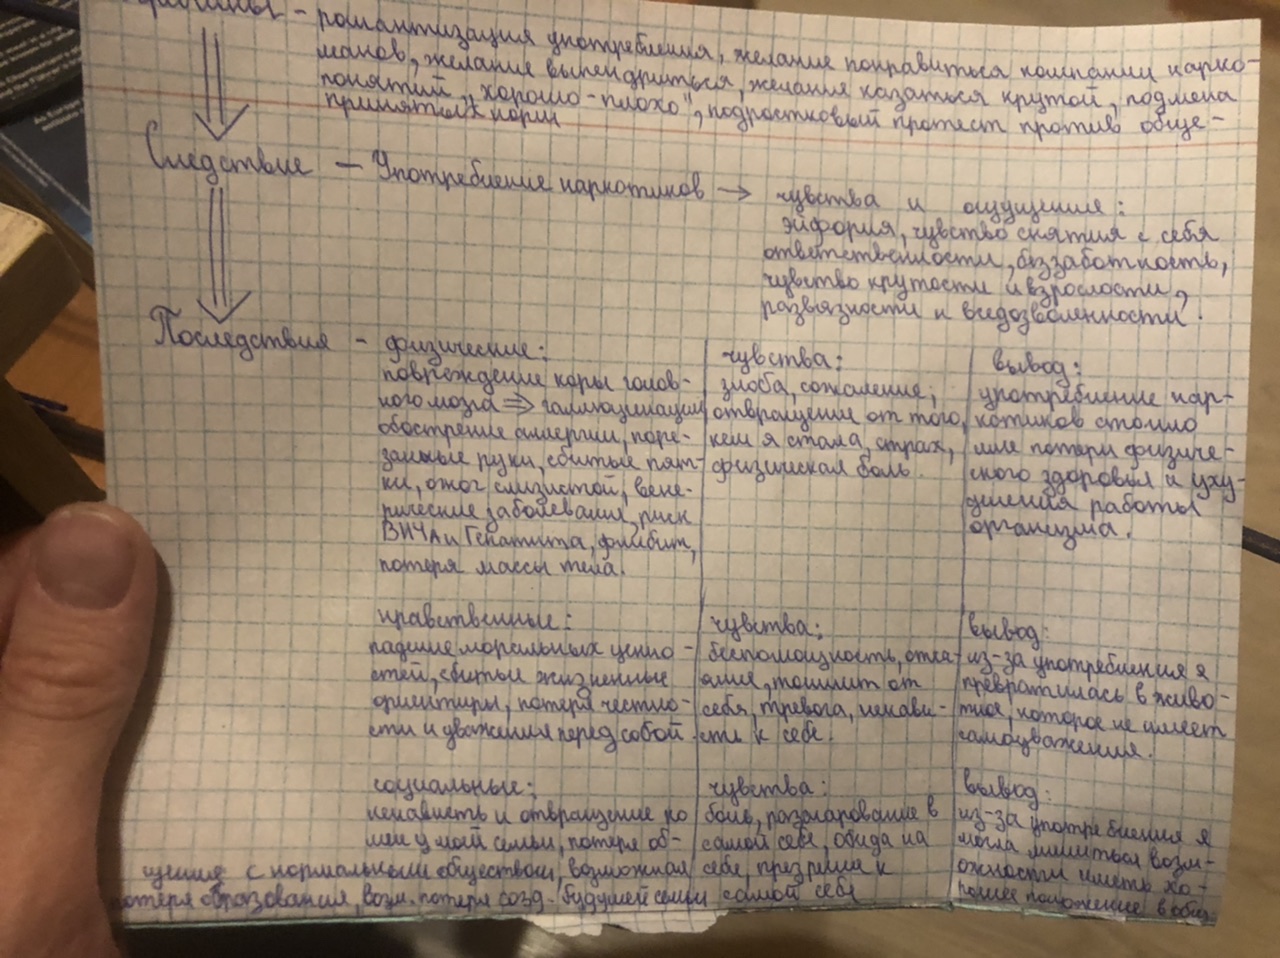 Причины - романтизация употребления, желание понравиться компании нарко-
манов, желание выпендриться, желание казаться крутой, подмена
понятий „хорошо-плохо", подростковый протест против обще-
принятых норм
Следствие — Употребление наркотиков → чувства и ощущения:
эйфория, чувство снятия с себя
ответственности, беззаботность,
чувство крутости и взрослости,
развязности и вседозволенности.
Последствия - физические:
повреждение коры голов-
ного мозга ⇒ галлюцинации
обострение аллергии, поре-
занные руки, сбитые пят-
ки, ожог слизистой, вене-
рические заболевания, риск
ВИЧА и Гепатита, флибит,
потеря массы тела.
чувства:
злоба, сожаление,
отвращение от того,
кем я стала, страх,
физическая боль.
вывод:
употребление нар-
котиков стоило
мне потери физиче-
ского здоровья и уху-
дшения работы
организма.
нравственные:
падение моральных ценно-
стей, сбитые жизненные
ориентиры, потеря честно-
сти и уважения перед собой
чувства:
беспомощность, отча-
яние, тошнит от
себя, тревога, ненави-
сть к себе.
вывод:
из-за употребления я
превратилась в живо-
тное, которое не имеет
самоуважения.
социальные:
ненависть и отвращение ко
мне у моей семьи, потеря об-
щения с нормальным обществом, возможная
потеря образования, возм. потеря созд. будущей семьи
чувства:
боль, разочарование в
самой себе, обида на
себя, презрение к
самой себе
вывод:
из-за употребления я
могла лишиться возм-
ожности иметь хо-
рошее положение в общ.